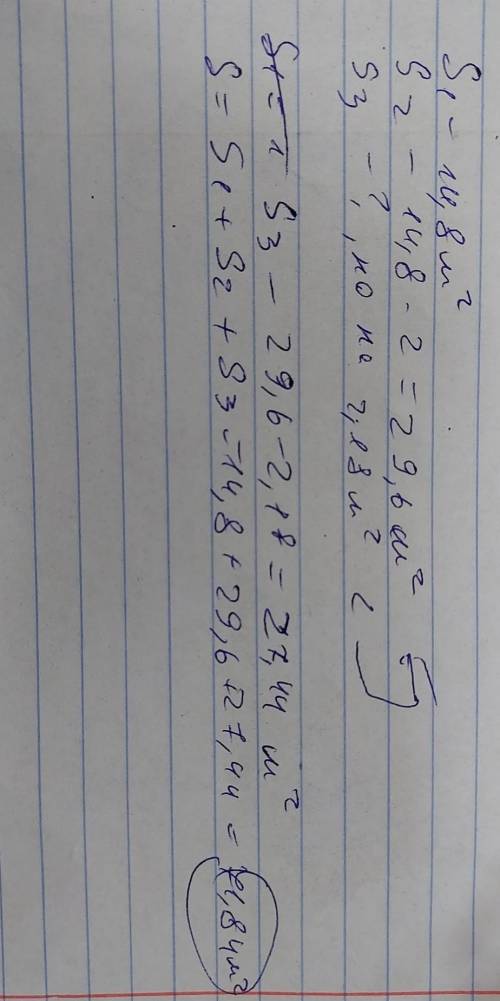 S₁ – 14,8 м²
S₂ – 14,8 · 2 = 29,6 м²
S₃ – ?, но на 2,18 м² <
S₃ – 29,6 – 2,18 = 27,44 м²
S = S₁ + S₂ + S₃ = 14,8 + 29,6 + 27,44 = 71,84 м²